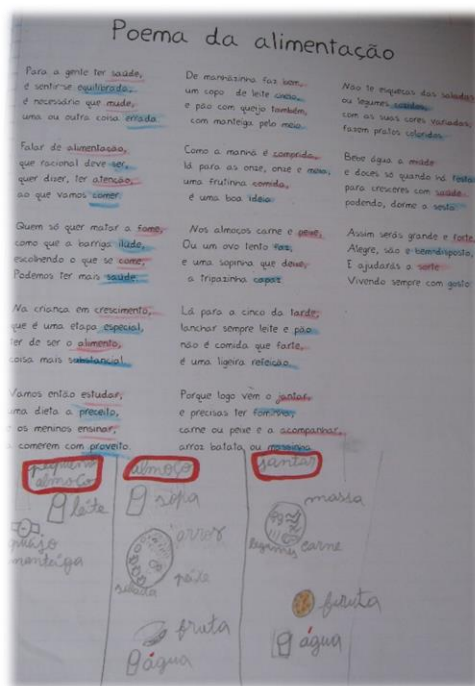 Poema da alimentação
Para a gente ter saúde,
é sentir-se equilibrada
é necessário que mude,
uma ou outra coisa errada
Falar de alimentação,
que racional deve ser,
quer dizer, ter atenção,
ao que vamos comer.
Quem só quer matar a fome,
como que a barriga ilude,
escolhendo o que se come,
Podemos ter mais saúde.
Na criança em crescimento,
que é uma etapa especial,
ter de ser o alimento,
coisa mais substancial.
Vamos então estudar,
uma dieta a preceito,
e os meninos ensinar,
a comerem com proveito.
De manhãzinha faz bem,
um copo de leite cheio,
e pão com queijo também,
com manteiga pelo meio
Como a manhã é comprida,
lá para as onze, onze e meia,
uma frutinha comida,
é uma boa ideia
Nos almoços carne e peixe,
Ou um ovo tento faz,
e uma sopinha que deixe,
a tripazinha capaz
Lá para a cinco da tarde,
lanchar sempre leite e pão
não é comida que farte,
é uma ligeira refeição.
Porque logo vem o jantar,
e precisas ter fominha,
carne ou peixe e a acompanhar,
arroz batata ou massinha
Não te esqueças das saladas
ou legumes cozidos,
com as suas cores variadas,
fazem pratos coloridos.
Bebe água a miúdo
e doces só quando há festa
para cresceres com saúde
podendo, dorme a sesta
Assim serás grande e forte,
Alegre, são e bem-disposto,
E ajudarás a sorte
Vivendo sempre com gosto
pequeno
almoço
leite
queijo
manteiga
almoço
sopa
arroz
salada
peixe
fruta
água
jantar
massa
legumes carne
fruta
água